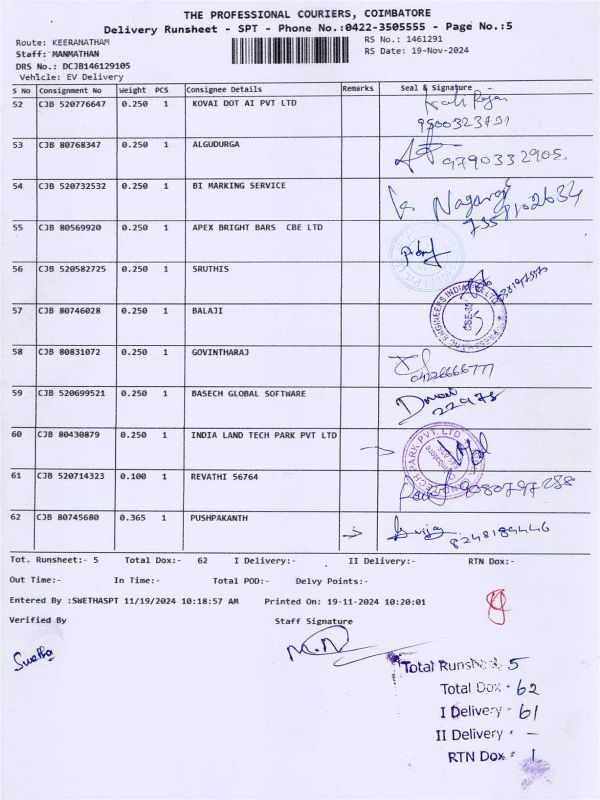 THE PROFESSIONAL COURIERS, COIMBATORE
Delivery Runsheet - SPT - Phone No.:0422-3505555 - Page No.:5
Route: KEERANATHAM
RS No.: 1461291
Staff: MANMATHAN
RS Date: 19-Nov-2024
DRS No.: DCJB146129105
Vehicle: EV Delivery
S No Consignment No Weight PCS Consignee Details Remarks Seal & Signature
52 CJB 520776647 0.250 1 KOVAI DOT AI PVT LTD
9500323731
53 CJB 80768347 0.250 1 ALGUDURGA
9790332905.
54 CJB 520732532 0.250 1 BI MARKING SERVICE
Nagaraj
55 CJB 80569920 0.250 1 APEX BRIGHT BARS CBE LTD
56 CJB 520582725 0.250 1 SRUTHIS
57 CJB 80746028 0.250 1 BALAJI
58 CJB 80831072 0.250 1 GOVINTHARAJ
04226666777
59 CJB 520699521 0.250 1 BASECH GLOBAL SOFTWARE
22975
60 CJB 80430879 0.250 1 INDIA LAND TECH PARK PVT LTD
61 CJB 520714323 0.100 1 REVATHI 56764
9080797288
62 CJB 80745680 0.365 1 PUSHPAKANTH
8248184446
Tot. Runsheet:- 5 Total Dox:- 62 I Delivery:- II Delivery:- RTN Dox:-
Out Time:- In Time:- Total POD:- Delvy Points:-
Entered By :SWETHASPT 11/19/2024 10:18:57 AM Printed On: 19-11-2024 10:20:01
Verified By Staff Signature
Swetha
M.N
Total Runsheet 5
Total Dox - 62
I Delivery - 61
II Delivery - -
RTN Dox - 1